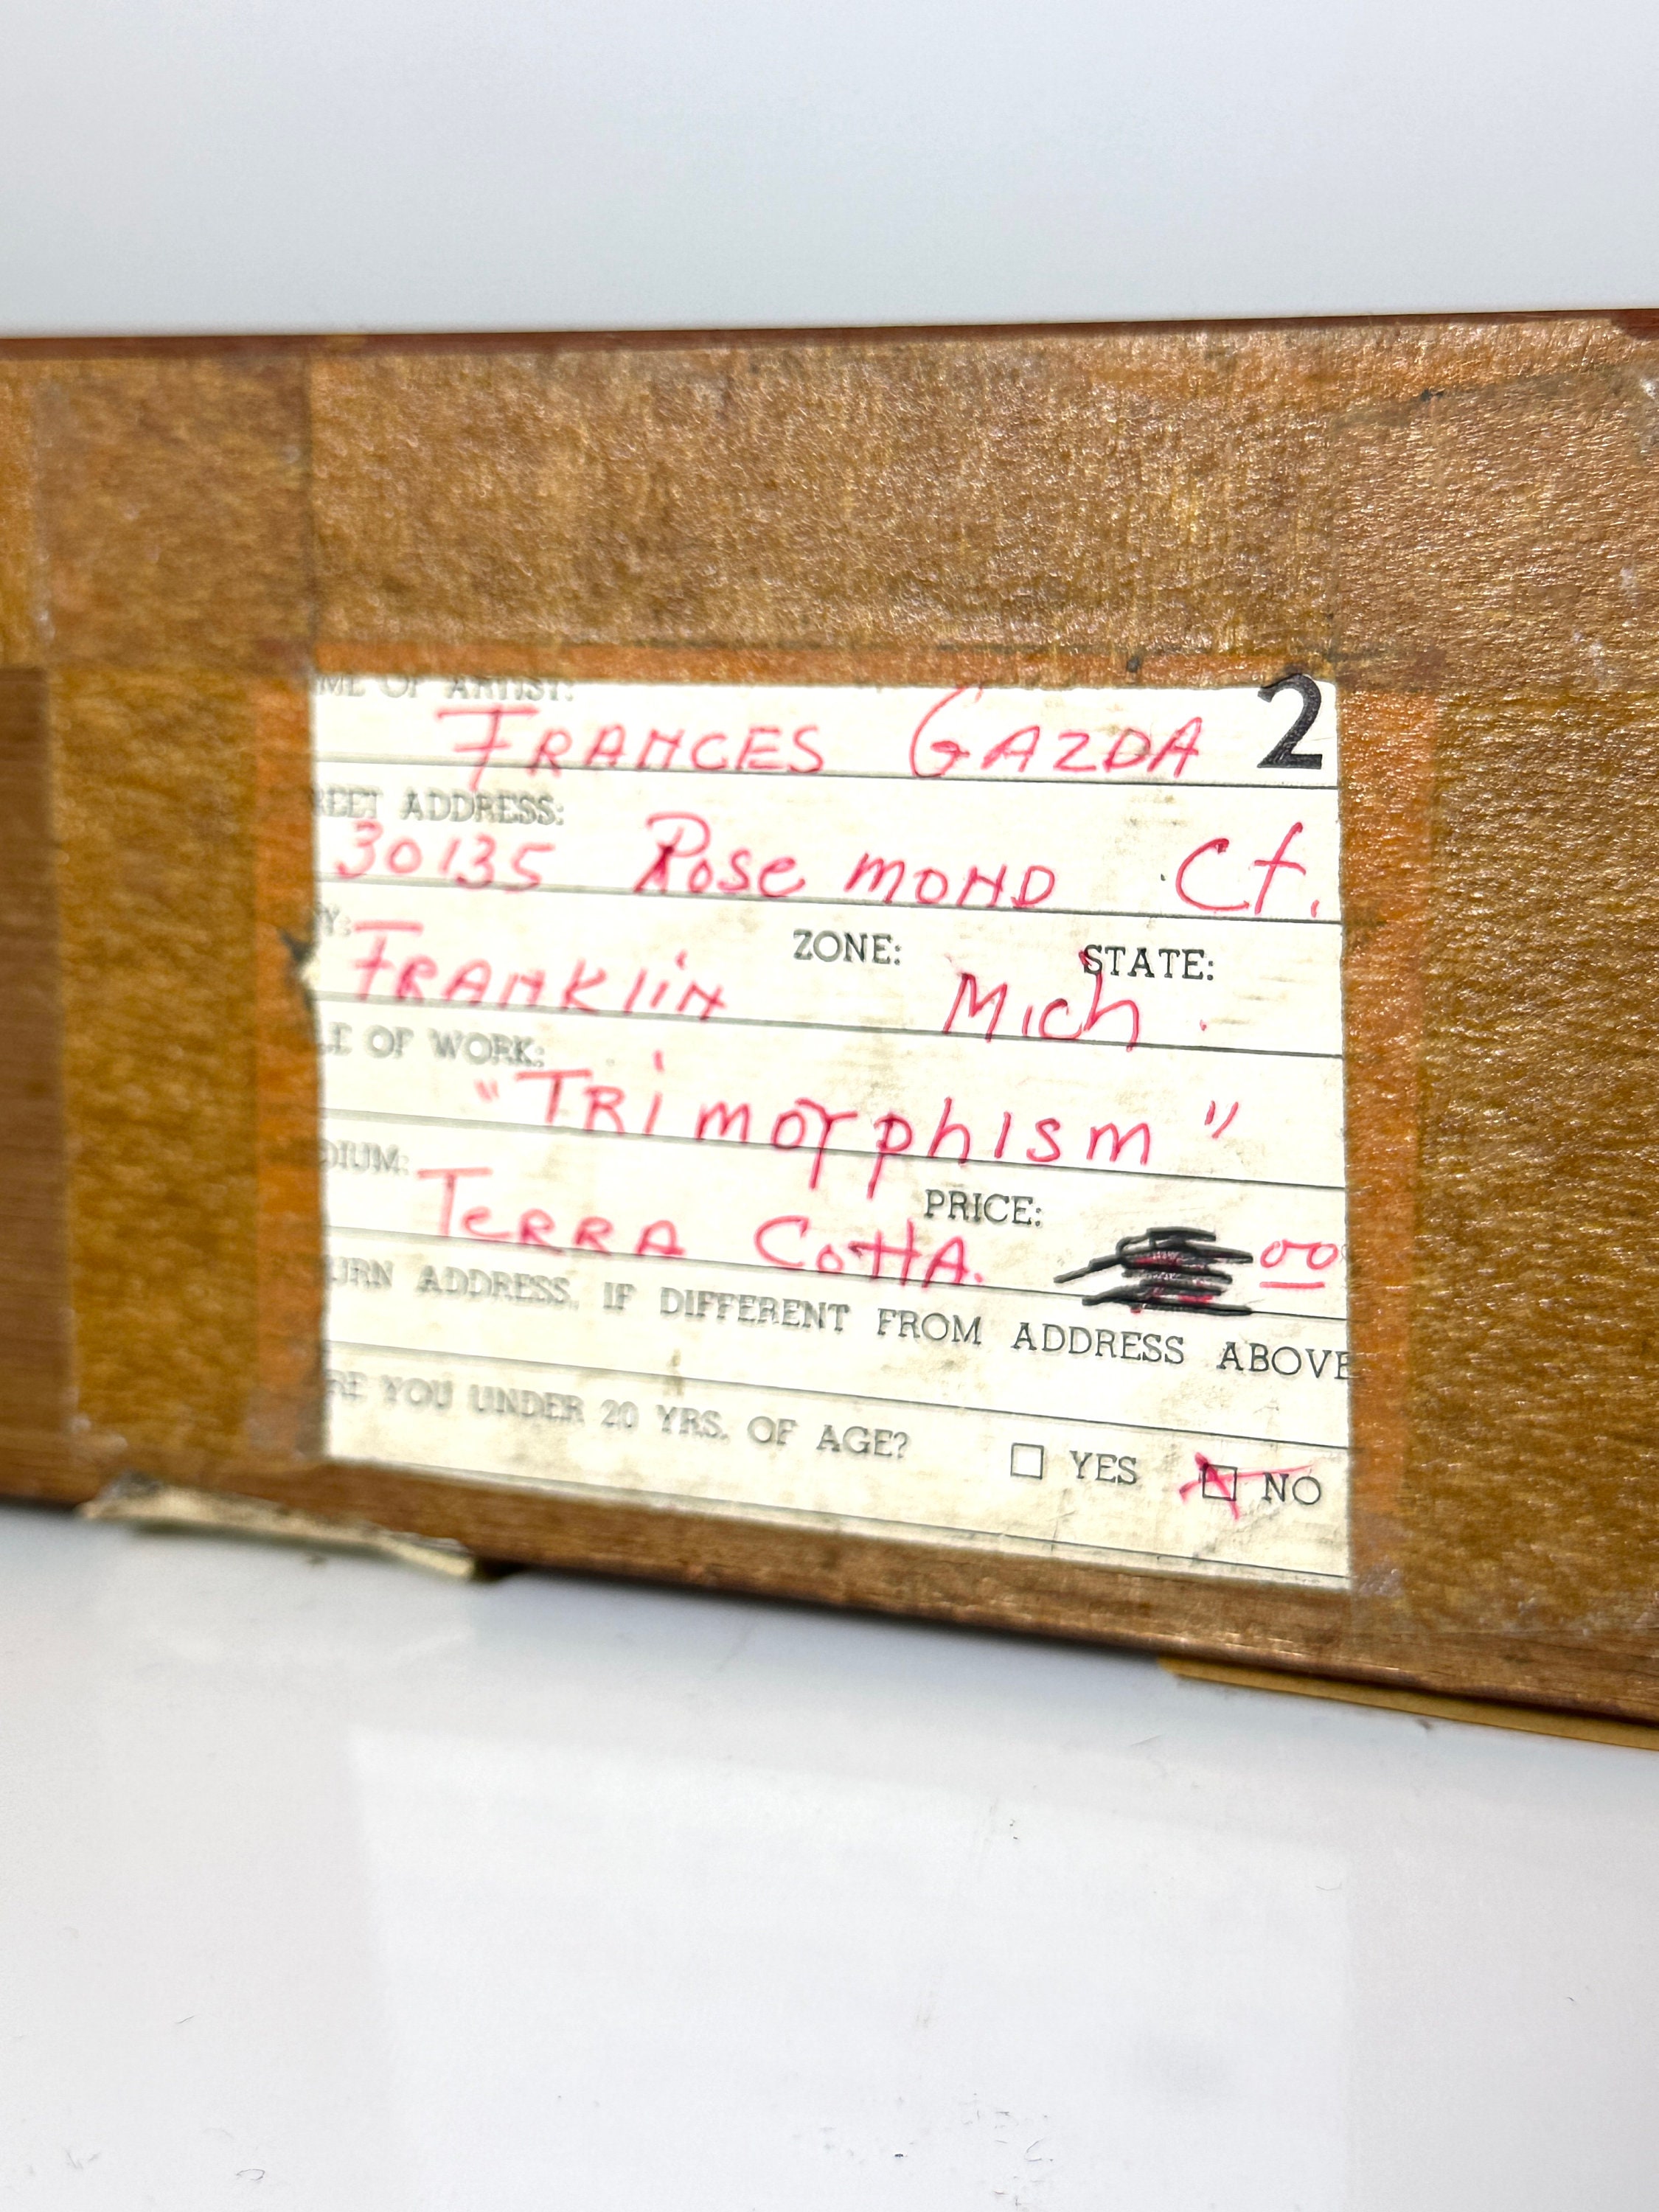 ME OF ARTIST:
FRANCES GAZDA 2
REET ADDRESS:
30135 Rose MOND Ct.
Y: ZONE: STATE:
FRANKliN Mich.
LE OF WORK:
"TRiMOrphism"
DIUM: PRICE:
TeRRA CottA. 00
URN ADDRESS, IF DIFFERENT FROM ADDRESS ABOVE
RE YOU UNDER 20 YRS. OF AGE? YES NO